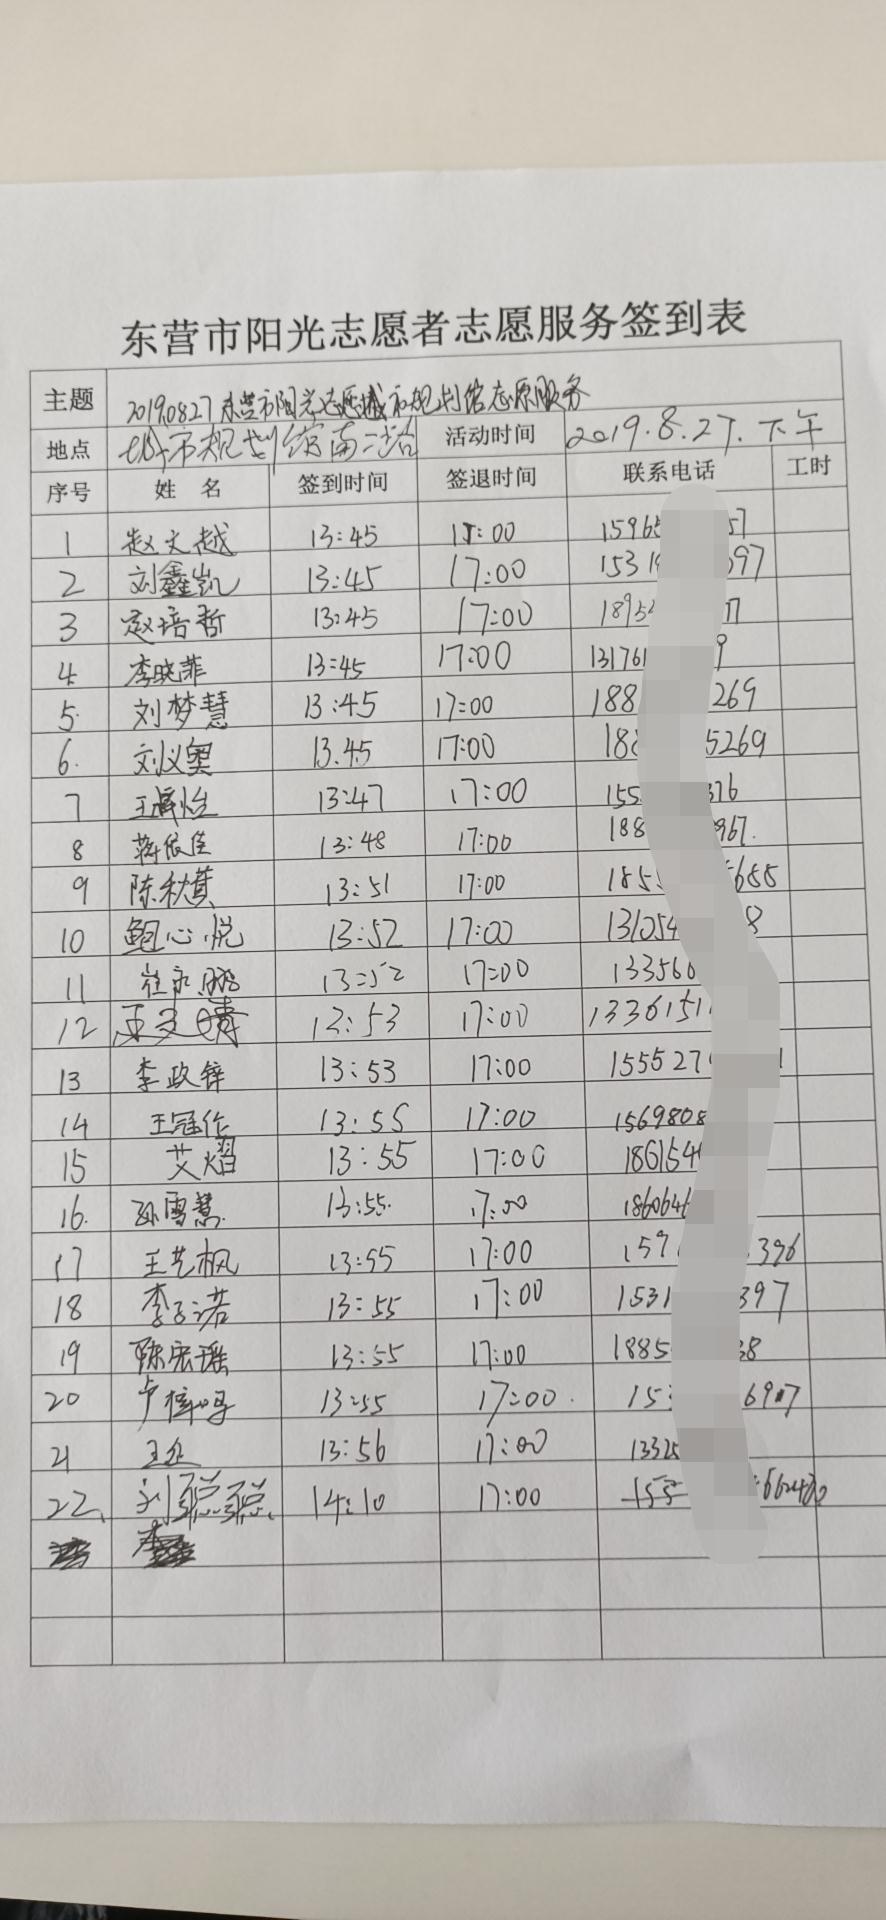 东营市阳光志愿者志愿服务签到表
主题 2019.08.27 东营市阳光志愿城市规划馆志愿服务
地点 城市规划馆南二路 活动时间 2019.8.27.下午
序号 姓名 签到时间 签退时间 联系电话 工时
1 赵文越 13:45 15:00 15965 57
2 刘鑫凯 13:45 17:00 1531 097
3 赵培哲 13:45 17:00 1895 77
4 李晓菲 13:45 17:00 131761 9
5. 刘梦慧 13:45 17:00 188 269
6. 刘议奥 13.45 17:00 188 5269
7 13:47 17:00 155 376
8 蒋依佳 13:48 17:00 188 967.
9 陈秋萁 13:51 17:00 185 5688
10 鲍心悦 13:52 17:00 131054 8
11 崔永鹏 13:52 17:00 133560
12 13:53 17:00 1336151
13 李政锌 13:53 17:00 155527 1
14 王冠作 13:55 17:00 1569808
15 艾熠 13:55 17:00 186154
16. 孙雪慧 13:55. 17:00 1860646
17 王艺枫 13:55 17:00 159 396
18 李子诺 13:55 17:00 1531 397
19 陈宏瑶 13:55 17:00 1885 38
20 卢梓鸣 13:55 17:00. 153 6907
21 13:56 17:00 13325
22、 刘聪聪 14:10 17:00 155